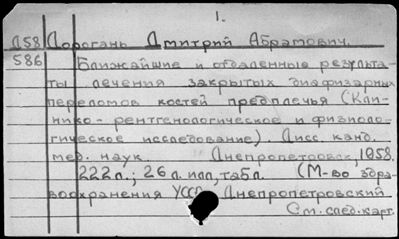 1.
Д58 Дорогань Дмитрий Абрамович.
586 Ближайшие и отдаленные результа-
ты лечения закрытых диафизарных
переломов костей предплечья (Кли-
нико-рентгенологическое и физиоло-
гическое исследование). Дисс. канд.
мед. наук. Днепропетровск, 1958.
222 л.; 26 л. илл, табл. (М-во здра-
воохранения УССР. Днепропетровский
См. след. карт.